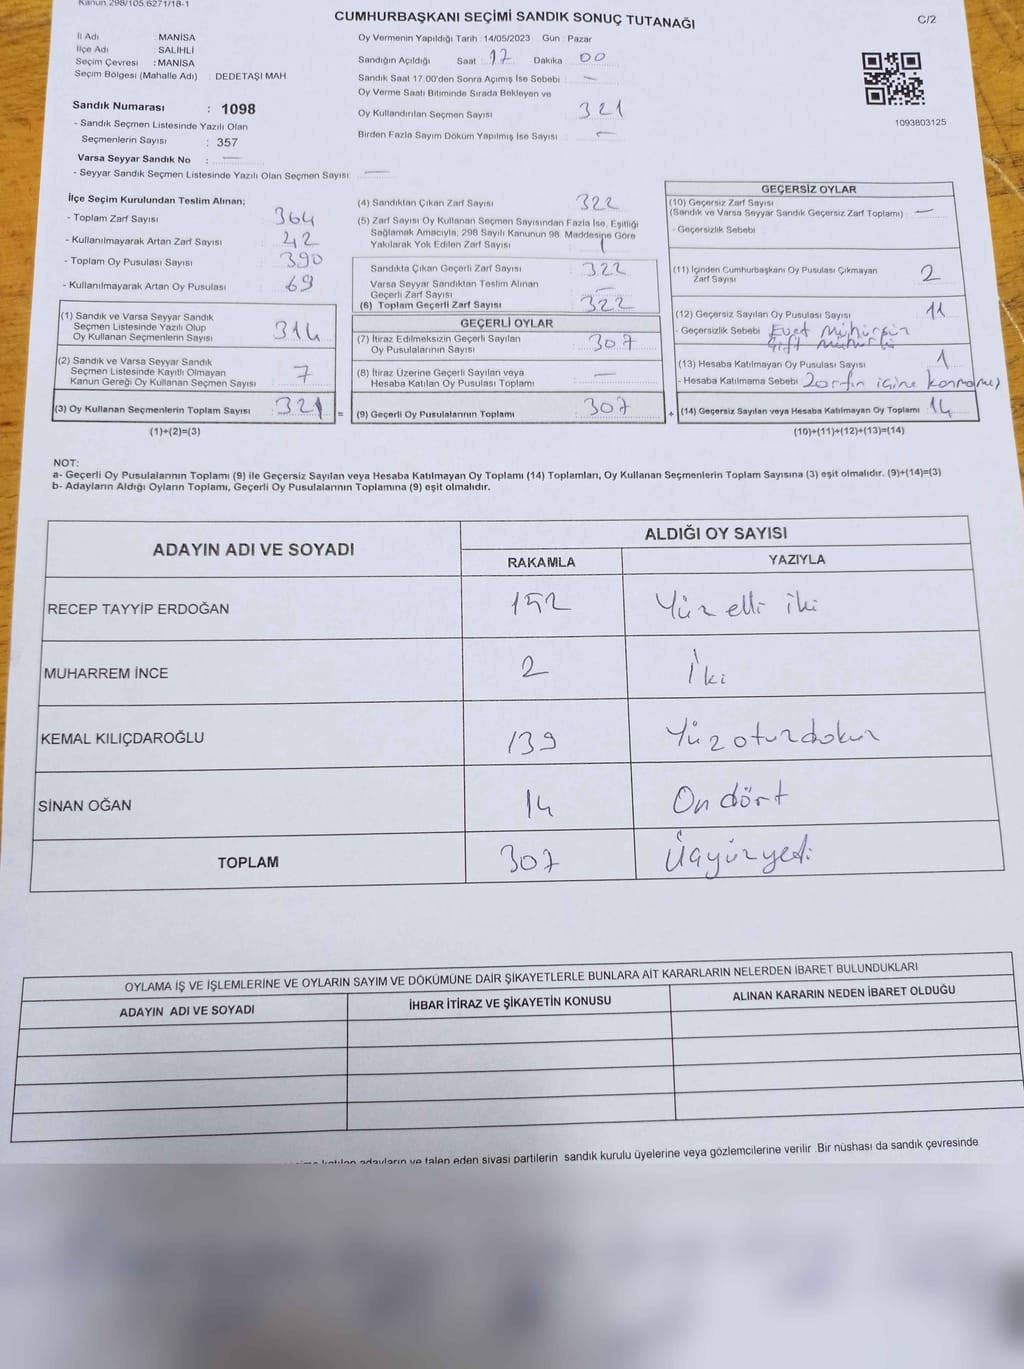 Kanun 298/105,6271/18-1
CUMHURBAŞKANI SEÇİMİ SANDIK SONUÇ TUTANAĞI
C/2
İl Adı : MANİSA
İlçe Adı : SALİHLİ
Seçim Çevresi : MANİSA
Seçim Bölgesi (Mahalle Adı) : DEDETAŞI MAH
Sandık Numarası : 1098
- Sandık Seçmen Listesinde Yazılı Olan
Seçmenlerin Sayısı : 357
Varsa Seyyar Sandık No : —
- Seyyar Sandık Seçmen Listesinde Yazılı Olan Seçmen Sayısı: —
Oy Vermenin Yapıldığı Tarih :14/05/2023 Gün : Pazar
Sandığın Açıldığı Saat 17 Dakika 00
Sandık Saat 17:00'den Sonra Açılmış İse Sebebi —
Oy Verme Saati Bitiminde Sırada Bekleyen ve
Oy Kullandırılan Seçmen Sayısı 321
Birden Fazla Sayım Döküm Yapılmış İse Sayısı —
1093803125
İlçe Seçim Kurulundan Teslim Alınan;
- Toplam Zarf Sayısı 364
- Kullanılmayarak Artan Zarf Sayısı 42
- Toplam Oy Pusulası Sayısı 390
- Kullanılmayarak Artan Oy Pusulası 69
(1) Sandık ve Varsa Seyyar Sandık
Seçmen Listesinde Yazılı Olup
Oy Kullanan Seçmenlerin Sayısı 314
(2) Sandık ve Varsa Seyyar Sandık
Seçmen Listesinde Kayıtlı Olmayan
Kanun Gereği Oy Kullanan Seçmen Sayısı 7
(3) Oy Kullanan Seçmenlerin Toplam Sayısı 321 =
(1)+(2)=(3)
(4) Sandıktan Çıkan Zarf Sayısı 322
(5) Zarf Sayısı Oy Kullanan Seçmen Sayısından Fazla İse, Eşitliği
Sağlamak Amacıyla, 298 Sayılı Kanunun 98. Maddesine Göre
Yakılarak Yok Edilen Zarf Sayısı 1
Sandıkta Çıkan Geçerli Zarf Sayısı 322
Varsa Seyyar Sandıktan Teslim Alınan
Geçerli Zarf Sayısı —
(6) Toplam Geçerli Zarf Sayısı 322
GEÇERLİ OYLAR
(7) İtiraz Edilmeksizin Geçerli Sayılan
Oy Pusulalarının Sayısı 307
(8) İtiraz Üzerine Geçerli Sayılan veya
Hesaba Katılan Oy Pusulası Toplamı —
(9) Geçerli Oy Pusulalarının Toplamı 307 +
GEÇERSİZ OYLAR
(10) Geçersiz Zarf Sayısı
(Sandık ve Varsa Seyyar Sandık Geçersiz Zarf Toplamı) —
- Geçersizlik Sebebi
(11) İçinden Cumhurbaşkanı Oy Pusulası Çıkmayan
Zarf Sayısı 2
(12) Geçersiz Sayılan Oy Pusulası Sayısı 11
- Geçersizlik Sebebi Evet Mühürsüz
Çift Mühürlü
(13) Hesaba Katılmayan Oy Pusulası Sayısı 1
- Hesaba Katılmama Sebebi Zarfın içine konmamış
(14) Geçersiz Sayılan veya Hesaba Katılmayan Oy Toplamı 14
(10)+(11)+(12)+(13)=(14)
NOT:
a- Geçerli Oy Pusulalarının Toplamı (9) ile Geçersiz Sayılan veya Hesaba Katılmayan Oy Toplamı (14) Toplamları, Oy Kullanan Seçmenlerin Toplam Sayısına (3) eşit olmalıdır. (9)+(14)=(3)
b- Adayların Aldığı Oyların Toplamı, Geçerli Oy Pusulalarının Toplamına (9) eşit olmalıdır.
ADAYIN ADI VE SOYADI
ALDIĞI OY SAYISI
RAKAMLA YAZIYLA
RECEP TAYYİP ERDOĞAN 152 Yüz elli iki
MUHARREM İNCE 2 İki
KEMAL KILIÇDAROĞLU 139 Yüzotuzdokuz
SİNAN OĞAN 14 On dört
TOPLAM 307 Üçyüzyedi
OYLAMA İŞ VE İŞLEMLERİNE VE OYLARIN SAYIM VE DÖKÜMÜNE DAİR ŞİKAYETLERLE BUNLARA AİT KARARLARIN NELERDEN İBARET BULUNDUKLARI
ADAYIN ADI VE SOYADI İHBAR İTİRAZ VE ŞİKAYETİN KONUSU ALINAN KARARIN NEDEN İBARET OLDUĞU
katılan adayların ve talep eden siyasi partilerin sandık kurulu üyelerine veya gözlemcilerine verilir .Bir nüshası da sandık çevresinde